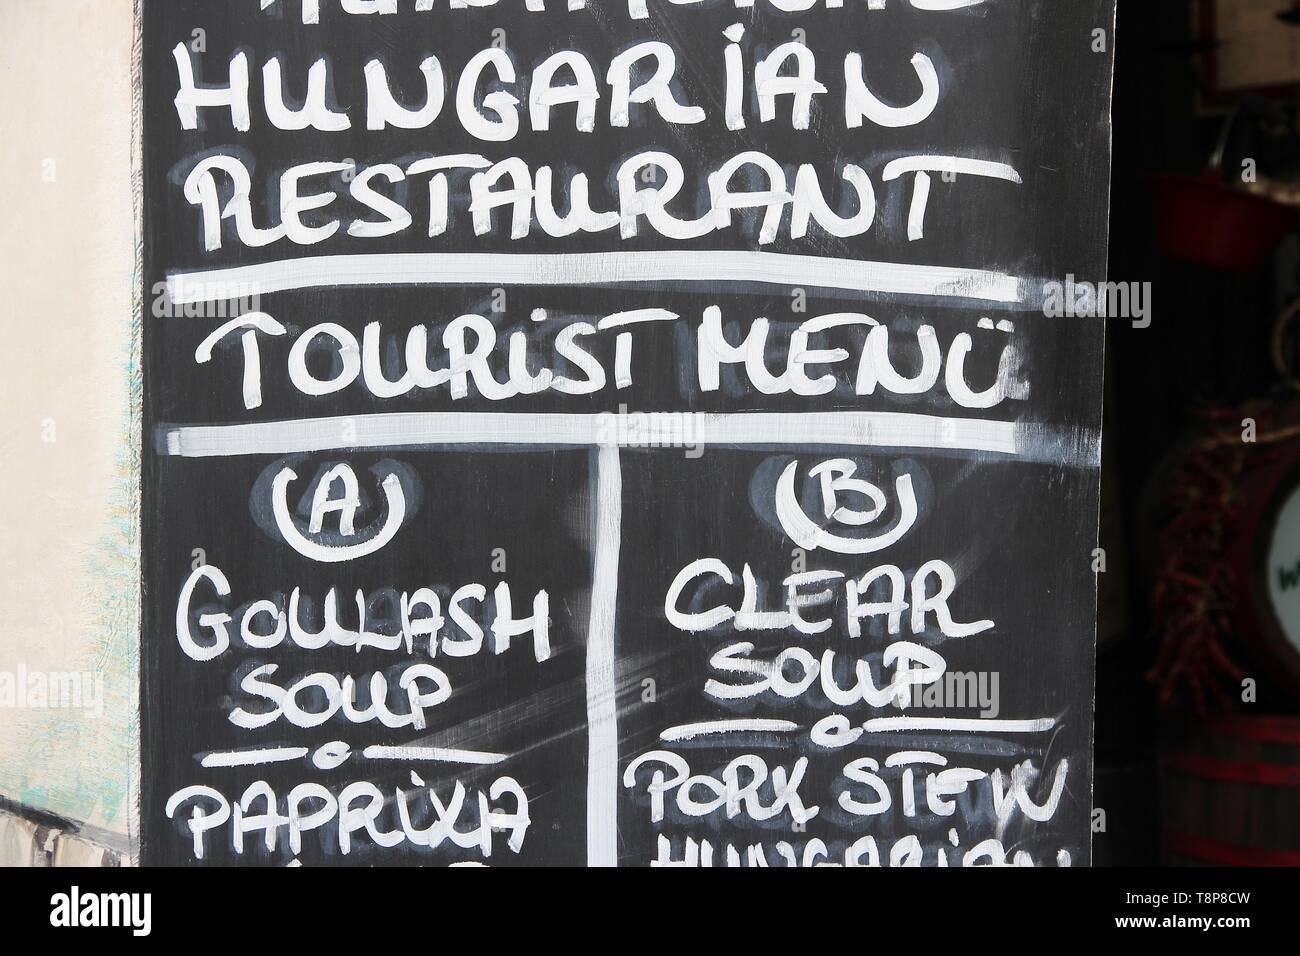 HUNGARIAN
RESTAURANT
TOURIST MENÜ
A
GOULASH
SOUP
PAPRIKA
B
CLEAR
SOUP
PORK STEW
HUNGARIAN
alamy
Image ID: T8P8CW
www.alamy.com